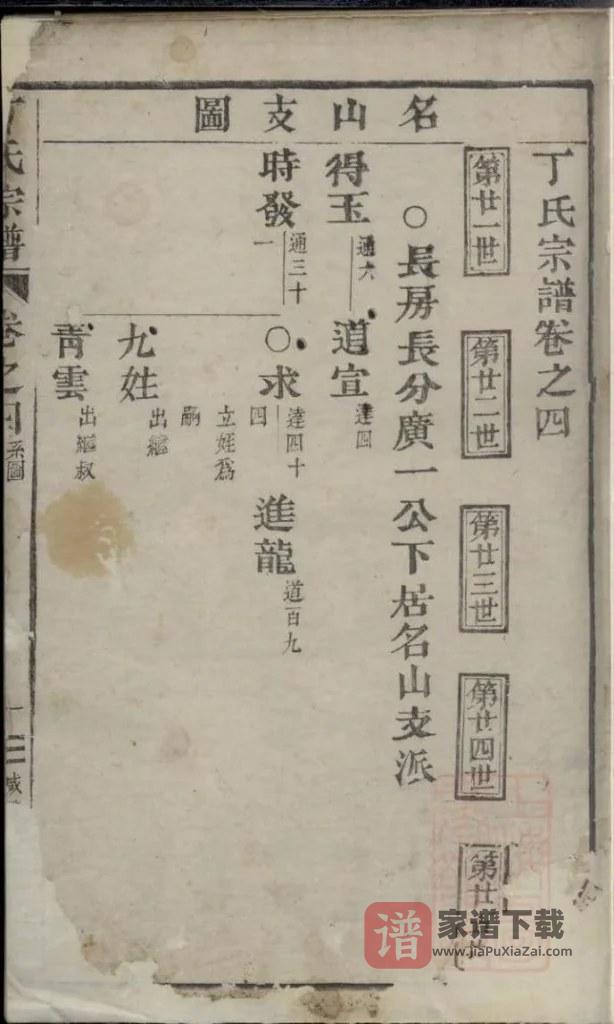 丁氏宗譜卷之四
第廿一世
第廿二世
第廿三世
第廿四世
第廿
名山支圖
○長房長分廣一公下居名山支派
得玉
通六
道宣
達四
時發
通三十
一
○求
達四十
四
立姪爲
嗣
進龍
道百九
九姓
出繼
青雲
出繼叔
丁氏宗譜
卷之四
系圖
一
谱
家谱下载
www.jiaPuXiaZai.com